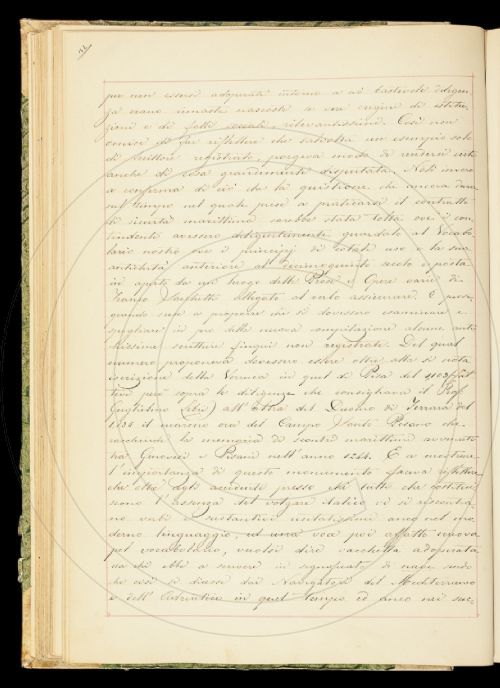 per non essersi adoperate intorno a ciò bastevole diligen
za erano rimaste nascoste le vere origini di istitu
zioni e di fatti sociali, rilevantissimi. Così non
omise di far riflettere che talvolta un esempio solo
di scrittore registrato, porgeva modo di uscir certi
anche di cosa grandemente disputata. Notò invero
a conferma di ciò che la quistione che ancora dura
sul tempo nel quale prese a praticarsi il contratto
di sicurtà marittima sarebbe stata tolta ove i con
tendenti avessero diligentemente guardato al Vocabo
lario nostro ove i principj di cotale uso e la sua
antichità anteriore al decimoquinto secolo
in aperto da un luogo delle Prose e Opere varie di
Franco Sacchetti allegato al verbo assicurare. E
quando venne a proporre che si dovessero esaminare e
spogliare in pro della nuova compilazione alcune anti
chissime scritture finquì non registrate. Del qual
numero proponeva dovessero essere oltre alla sì nota
iscrizione della Verruca in quel di Pisa del 1103
le diligenze che consigliava il Prof.
Guglielmo Libri) all'altra del Duomo di Ferrara del
1135 il marmo ora del Campo Santo Pisano che
racchiude la memoria di scontri marittimi avvenuti
tra Genovesi e Pisani nell'anno 1244. E a mostrare
l'importanza di questo monumento faceva riflettere
che oltre agli accidenti presso che tutti che costitui
scono l'essenza del volgare italico vi si riscontra
no verbi e sustantivi usitatissimi anco nel mo
derno linguaggio, ed una voce poi affatto nuova
pel vocabolario, vuolsi dire vacchetta adoperata
da chi ebbe a scrivere in significato di nave
che così si dicesse dai Navigatori del Mediterraneo
e dell'Adriatico in quel tempo ed anco nei suc-